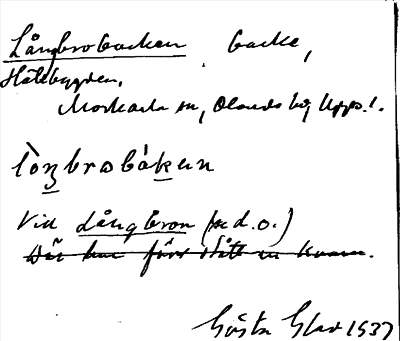 Långbrobacken backe,
Hållbyggden.
Morkarla sn, Olands hd, Upps. l.
lòŋbrobàkɐn
Vid Långbron (se d.o.)
Där har förr stått en kvarn.
Gösta Glad 1937